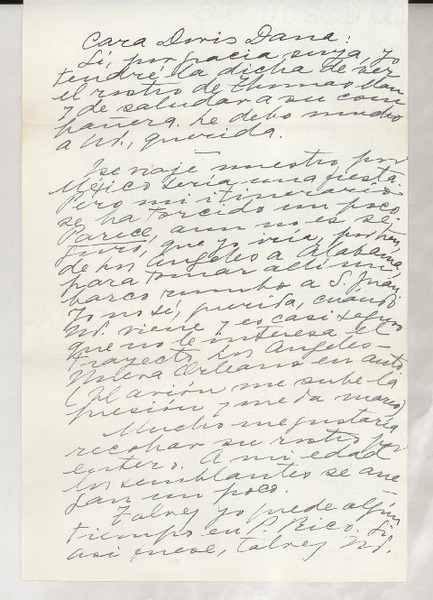 Cara Doris Dana:
Sí, por gracia suya, yo
tendré la dicha de ver
el rostro de Thomas Mann
y de saludar a su com
pañera. Le debo mucho
a Ud., querida.
Ese viaje nuestro por
México sería una fiesta.
Pero mi itinerario
se ha torcido un poco.
Parece, aun no es se-
guro, que yo iría, por tren,
de Los Angeles a Alabama,
para tomar allí mi
barco rumbo a S. Juan.
Yo no sé, querida, cuando
Ud. viene y es casi seguro
que no le interesa el
trayecto Los Angeles-
Nueva Orleans en auto.
(El avión me sube la
presión y me da mareo)
Mucho me gustaría
recobrar su rostro por
entero. A mi edad
los semblantes se ane
gan un poco.
Talvez yo quede algún
tiempo en P. Rico. Si
así fuese, talvez Ud.